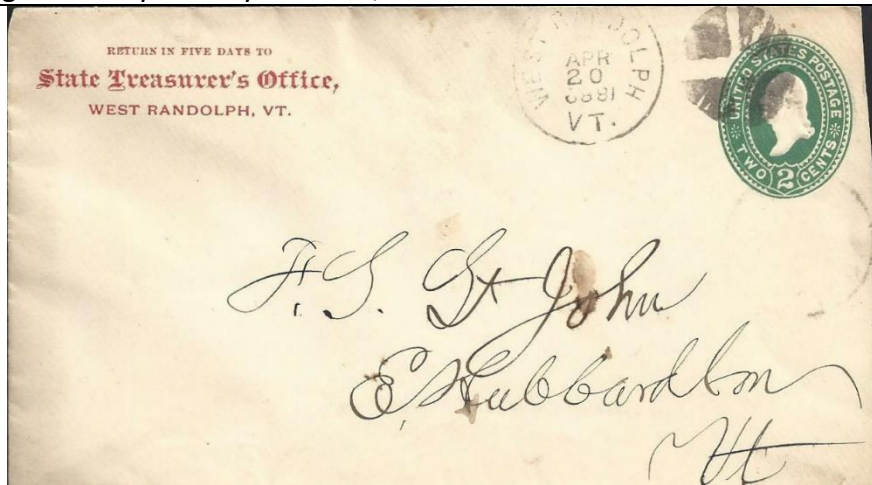 RETURN IN FIVE DAYS TO
State Treasurer's Office,
WEST RANDOLPH, VT.
WEST RANDOLPH
APR
20
1889
VT.
UNITED STATES POSTAGE
TWO 2 CENTS
F. S. St John
E. Hubbardton
Vt